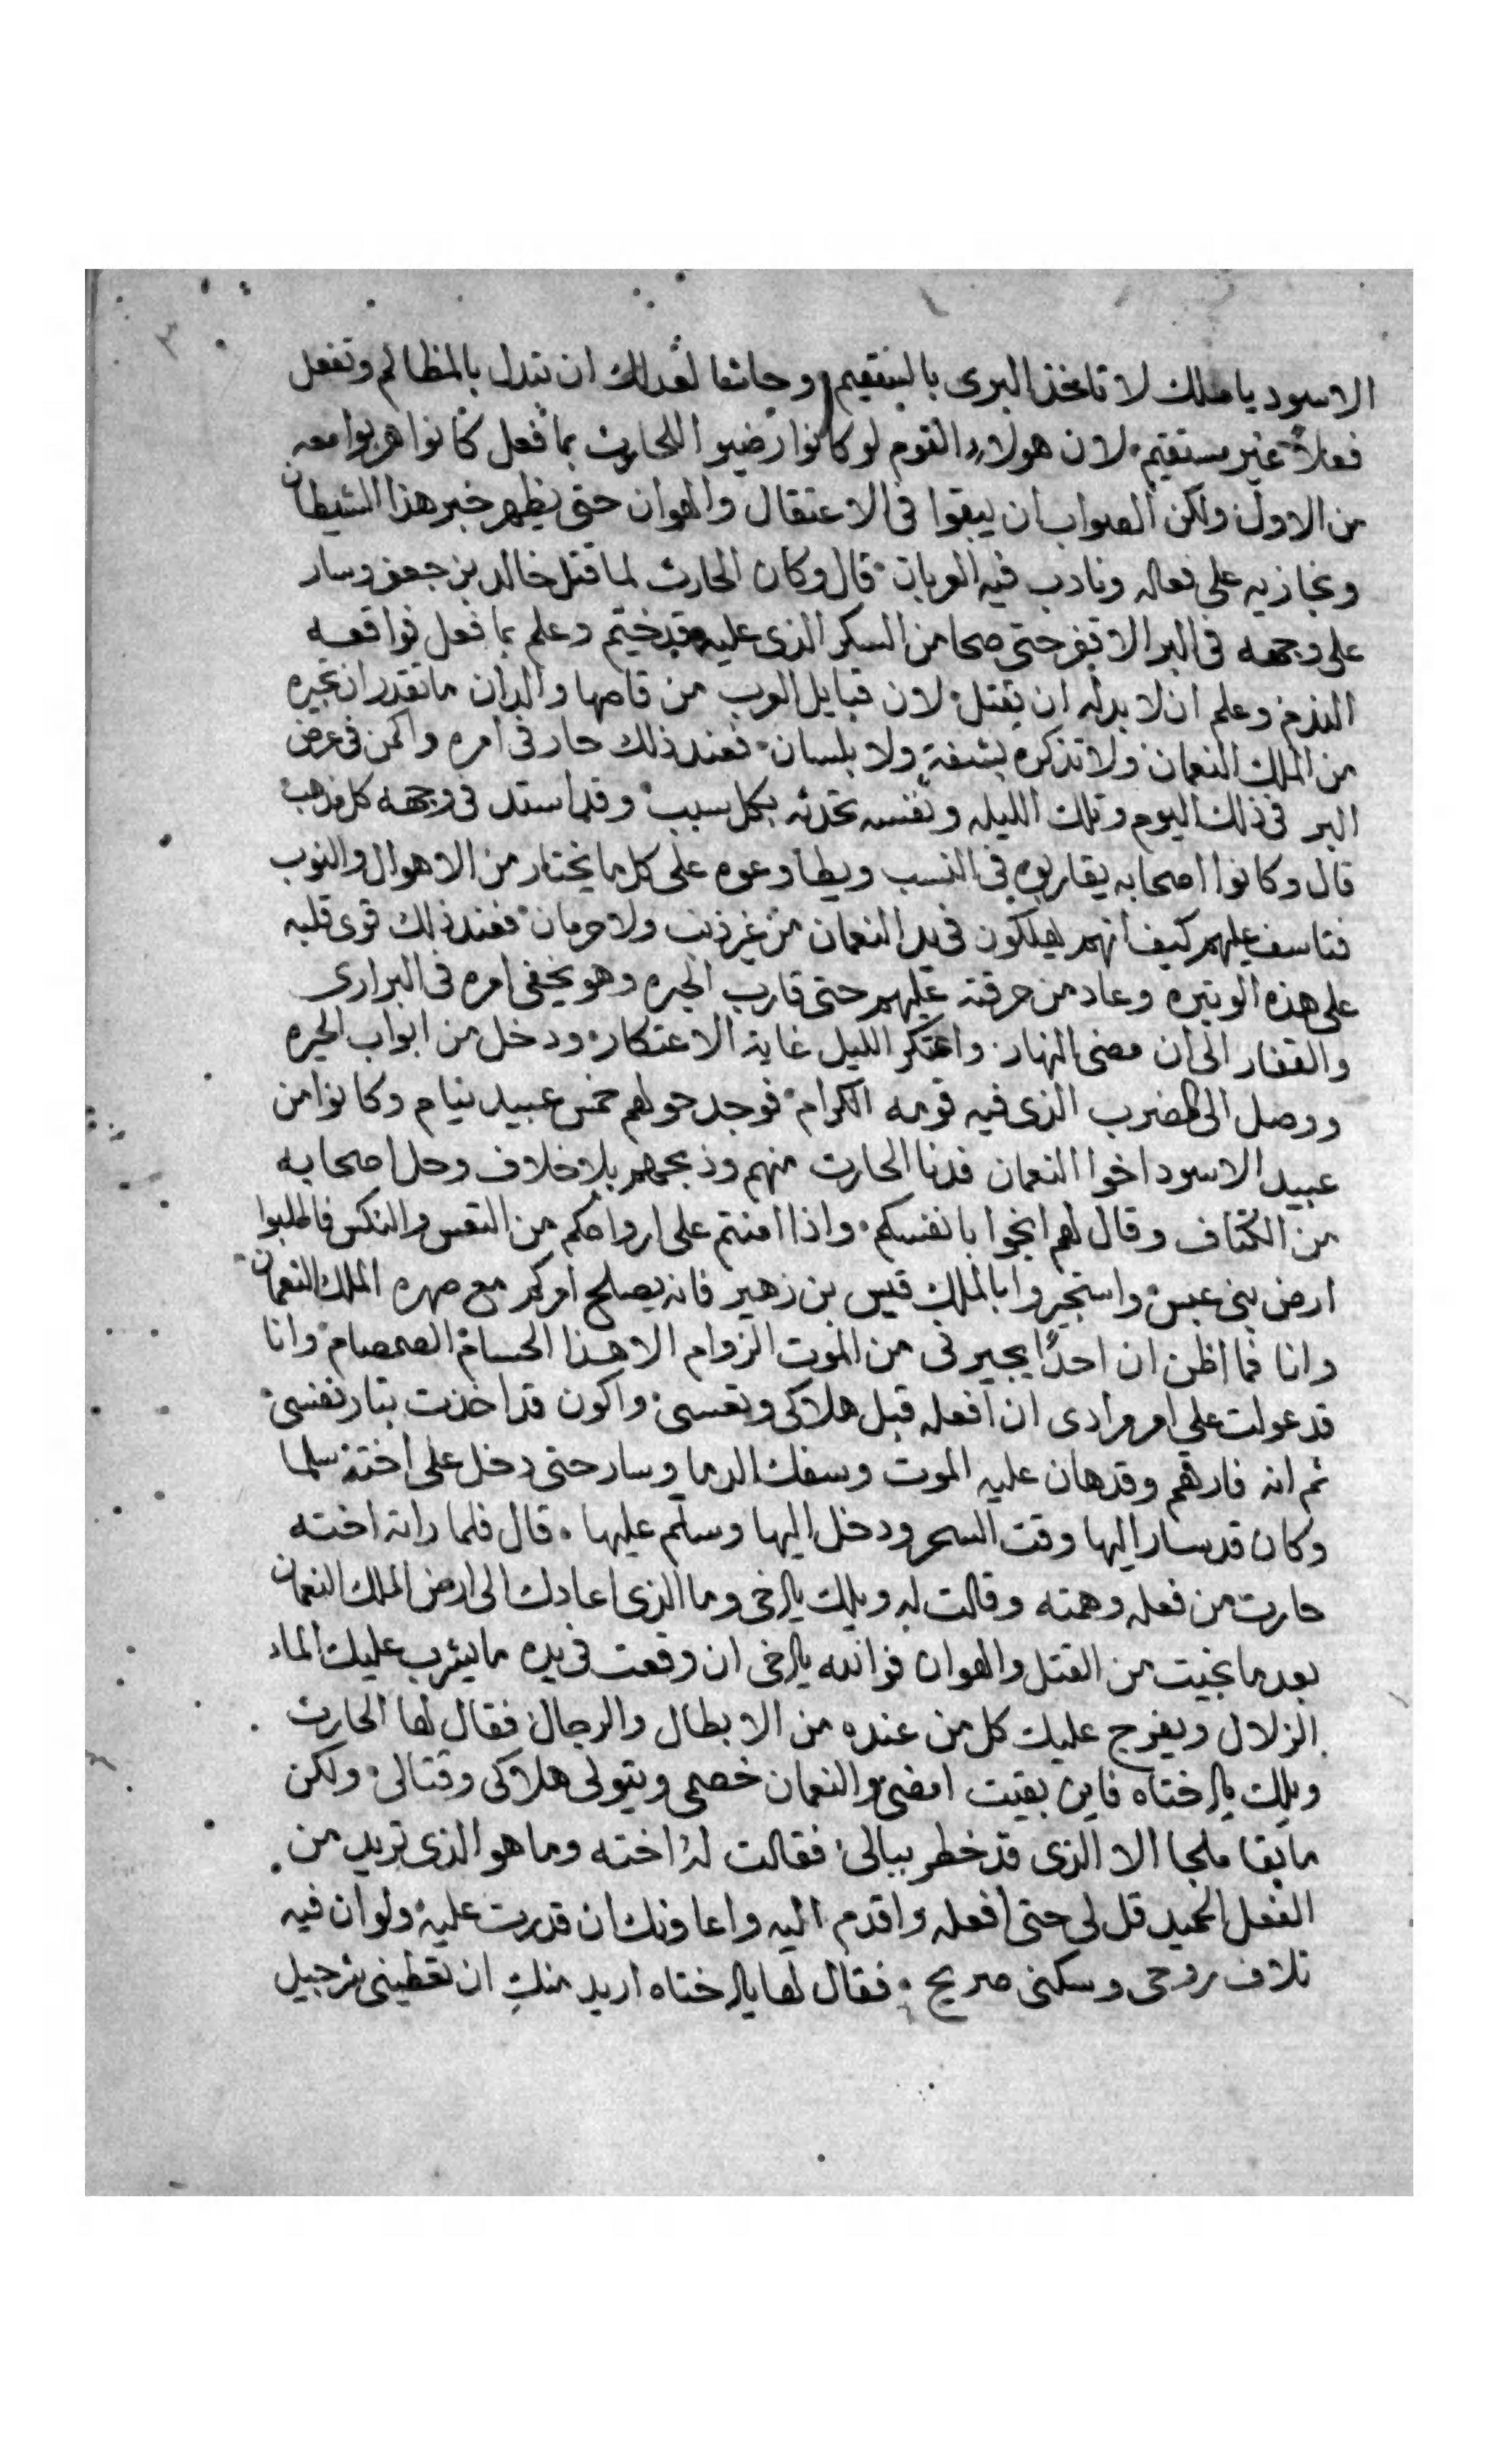 الاسود يا ملك لا تاخذ البرى بالسقيم وحاشا لعدلك ان تبدل بالمظالم وتفعل
فعلاً غير مستقيم لان هولاء القوم لو كانوا رضيوا للحارث بما فعل كانوا هربوا معه
من الاول ولكن الصواب ان يبقوا فى الاعتقال والهوان حتى يظهر خبر هذا الشيطان
ونجازيه على فعاله وتادب فيه العربان قال وكان الحارث لما قتل خالد بن جعفر وسار
على وجهه فى البر الاقفر حتى صحا من السكر الذى عليه وقد خيم وعلم بما فعل فواقعه
الندم وعلم ان لا بد له ان يقتل لان قبايل العرب من قاصها والدان ما تقدر ان تجيره
من الملك النعمان ولا تذكره بشفة ولا بلسان فعند ذلك حار فى امره واكمن فى عرض
البر فى ذلك اليوم وتلك الليله ونفسه تحدثه بكل سبب وقد استد فى وجهه كل مذهب
قال وكانوا اصحابه يقاربوه فى النسب ويطاوعوه على كل ما يختار من الاهوال والنوب
فتاسف عليهم كيف انهم يهلكون فى يد النعمان من غير ذنب ولا حرمان فعند ذلك قوى قلبه
على هذه الوتيره وعاد من حرقته عليهم حتى قارب الحيره وهو يخفى امره فى البرارى
والقفار الى ان مضى النهار واعتكر الليل غاية الاعتكار ودخل من ابواب الحيره
ووصل الى المضرب الذى فيه قومه الكرام فوجد حولهم خمس عبيد نيام وكانوا من
عبيد الاسود اخوا النعمان فدنا الحارث منهم وذبحهم بلا خلاف وحل اصحابه
من الكتاف وقال لهم انجوا بانفسكم واذا امنتم على ارواحكم من التعس والنكس فاطلبوا
ارض بنى عبس واستجيروا بالملك قيس بن زهير فانه يصلح امركم مع صهره الملك النعمان
وانا فما اظن ان احدًا يجيرنى من الموت الزوام الا هذا الحسام الصمصام وانا
قد عولت على امر مرادى ان افعله قبل هلاكى وتعسى واكون قد اخذت بتار نفسى
ثم انه فارقهم وقد هان عليه الموت وسفك الدما وسار حتى دخل على اخته سلما
وكان قد سار اليها وقت السحر ودخل اليها وسلم عليها قال فلما راته اخته
حارت من فعله وهمته وقالت له ويلك ياخى وما الذى اعادك الى ارض الملك النعمان
بعد ما نجيت من القتل والهوان فوالله ياخى ان وقعت فى يده ما يشرب عليك الماء
الزلال ويفرج عليك كل من عنده من الابطال والرجال فقال لها الحارث
ويلك ياختاه فاين بقيت امضى والنعمان خصمى ويتولى هلاكى وقتالى ولكن
ما بقا ملجا الا الذى قد خطر ببالى فقالت له اخته وما هو الذى تريد من
الفعل الحميد قل لى حتى افعله واقدم اليه واعاونك ان قدرت عليه ولو ان فيه
تلاف روحى وسكنى ضريح فقال لها ياختاه اريد منك ان تعطينى شرحبيل